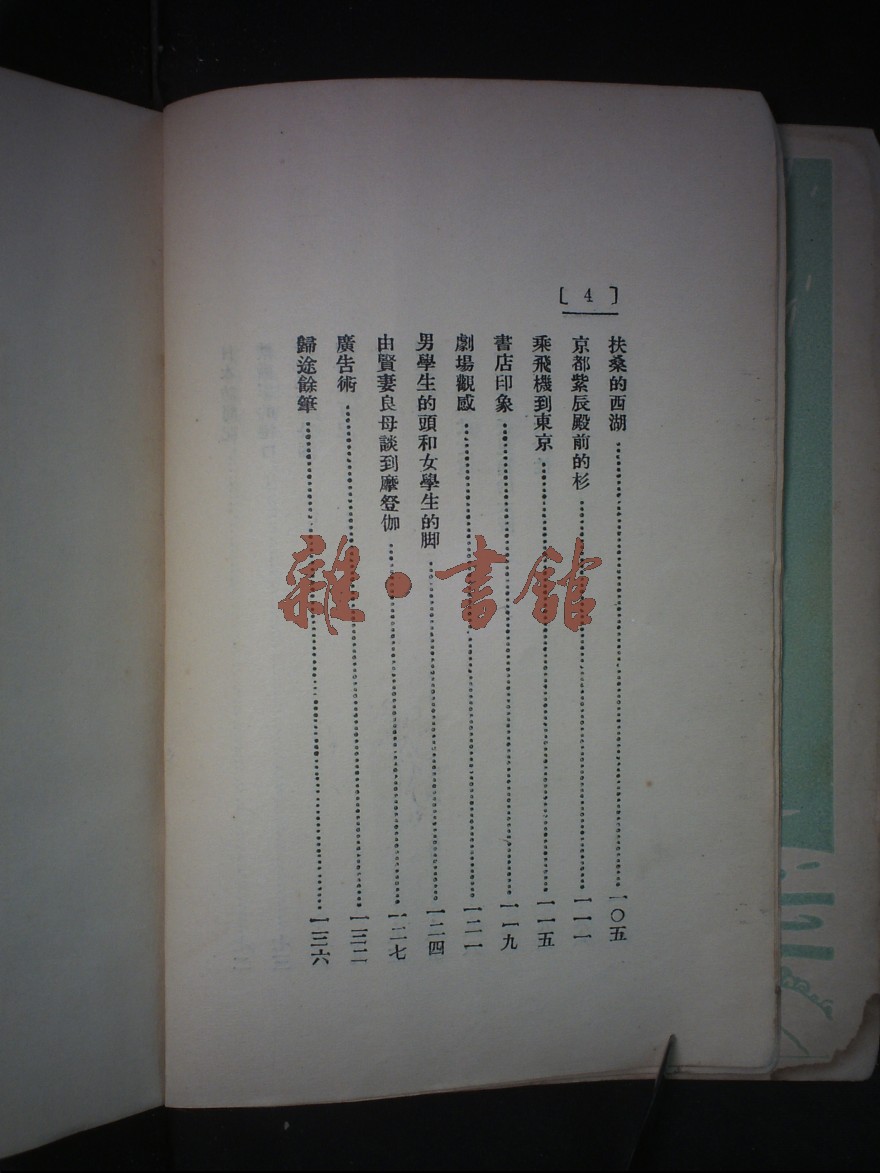 [ 4 ]
扶桑的西湖…………一〇五
京都紫辰殿前的杉…………一一一
乘飛機到東京…………一一五
書店印象…………一一九
劇場觀感…………一二一
男學生的頭和女學生的脚…………一二四
由賢妻良母談到摩登伽…………一二七
廣告術…………一三二
歸途餘筆…………一三六
雜·書館